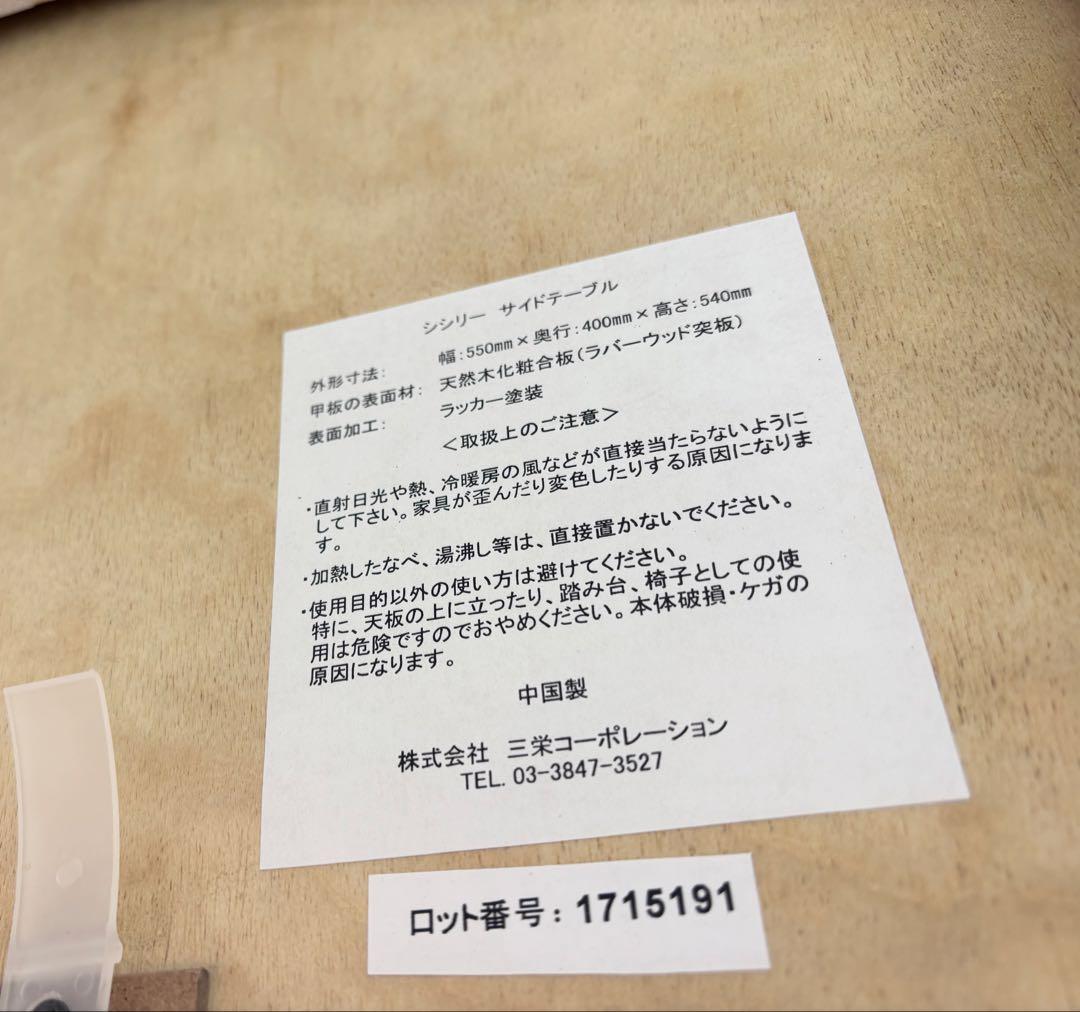 シシリー　サイドテーブル
外形寸法：　幅：550mm×奥行：400mm×高さ：540mm
甲板の表面材：　天然木化粧合板（ラバーウッド突板）
表面加工：　ラッカー塗装
＜取扱上のご注意＞
・直射日光や熱、冷暖房の風などが直接当たらないように
して下さい。家具が歪んだり変色したりする原因になりま
す。
・加熱したなべ、湯沸し等は、直接置かないでください。
・使用目的以外の使い方は避けてください。
特に、天板の上に立ったり、踏み台、椅子としての使
用は危険ですのでおやめください。本体破損・ケガの
原因になります。
中国製
株式会社　三栄コーポレーション
TEL. 03-3847-3527
ロット番号：1715191